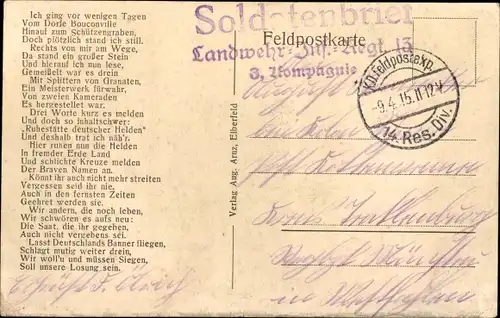 Ich ging vor wenigen Tagen
Vom Dorfe Bouconville
Hinaul zum Schützengraben,
Doch plötzlich stand ich still.
Rechts von mir am Wege,
Da stand ein großer Stein
Und hierauf ich nun lese,
Gemeißelt war es drein
Mit Splittern von Granaten,
Ein Meisterwerk fürwahr,
Von zweien Kameraden
Es hergestellt war.
Drei Worte kurz es melden
Und doch so inhaltschwer:
"Ruhestätte deutscher Helden"
Und deshalb trat ich näh'r.
Hier ruhen nun die Helden
In fremder Erde Land
Und schlichte Kreuze melden
Der Braven Namen an.
Könnt ihr auch nicht mehr streiten
Vergessen seid ihr nie,
Auch in den fernsten Zeiten
Geehret werden sie.
Wir andern, die noch leben,
Wir schwören es aufs neu:
Die Saat, die ihr gegeben,
Auch nicht vergebens sei.
Lasst Deutschlands Banner fliegen,
Schlagt mutig weiter drein,
Wir woll'n und müssen Siegen,
Soll unsere Losung sein.
Verlag Aug. Arnz, Elberfeld
Soldatenbrief
Feldpostkarte
Landwehr-Inf.-Regt. 13
3. Kompagnie
K.D. Feldpostexp.
9.4.15. 11-12 V
14. Res. Div.
in Westfalen